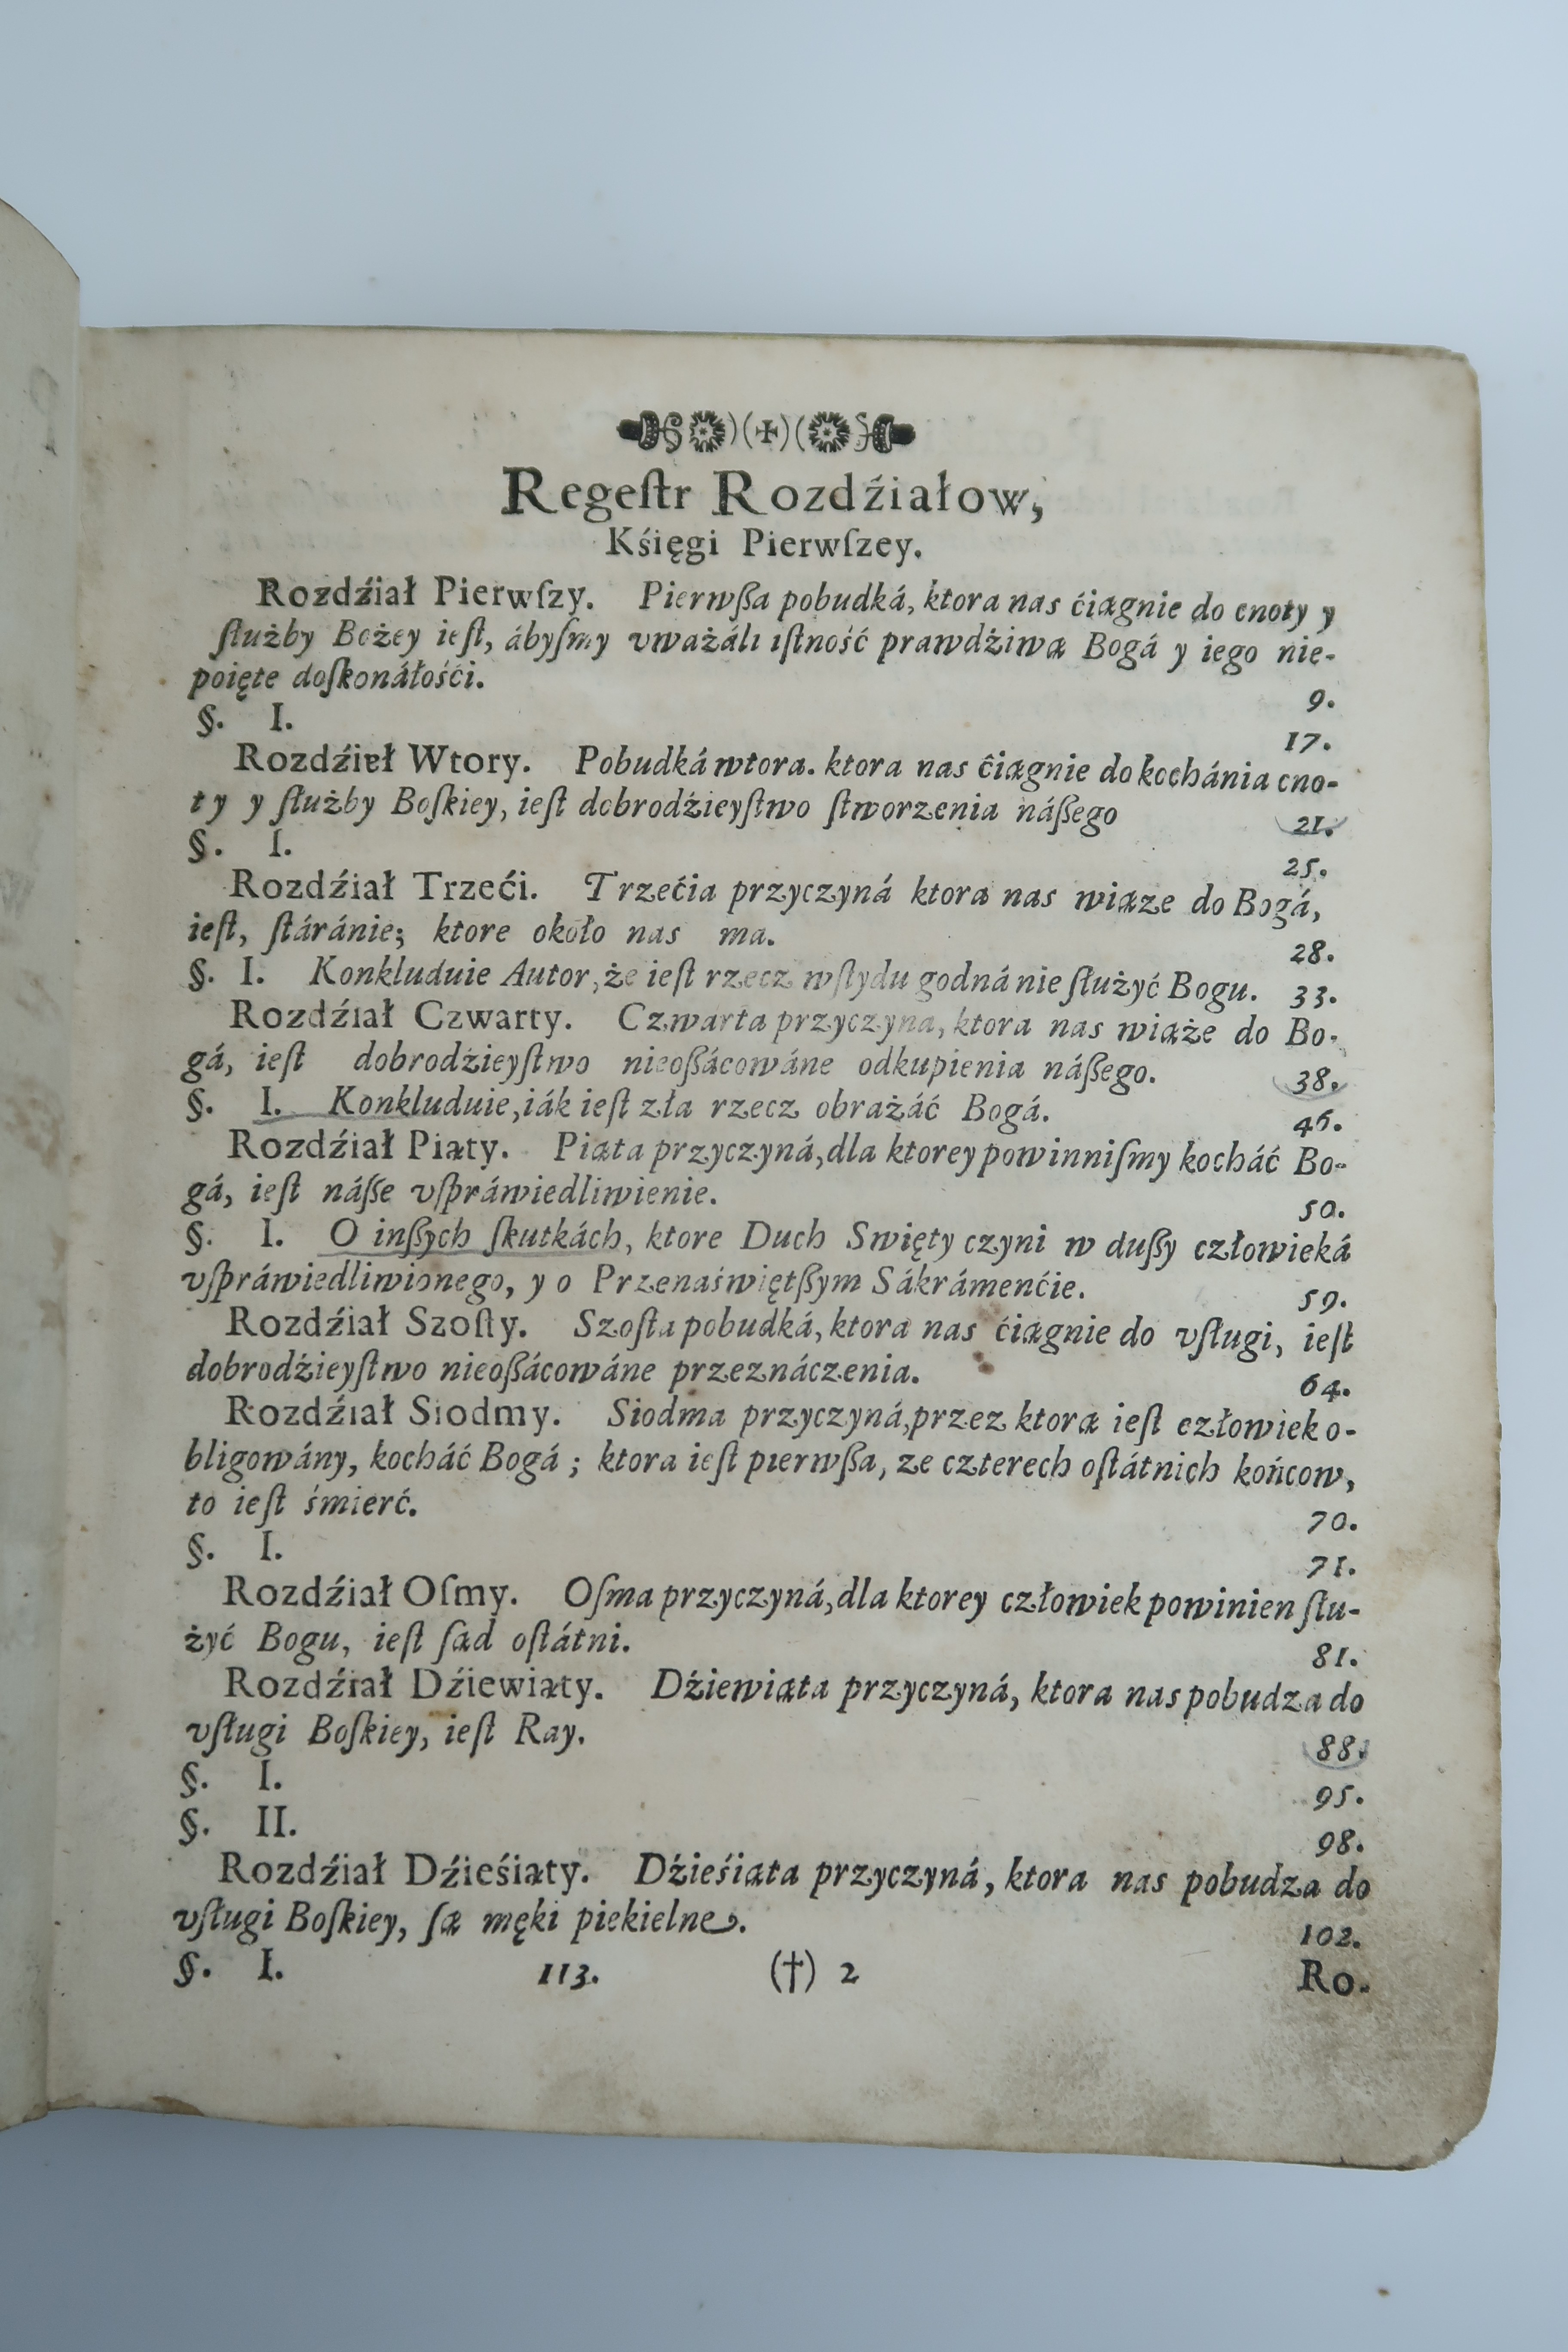 )(✠)(
Regeſtr Rozdźiałow,
Kśięgi Pierwſzey.
Rozdźiał Pierwſzy. Pierwßa pobudká, ktora nas ćiągnie do cnoty y
ſłużby Bożey ieſt, ábyſmy vważáli iſtność prawdźiwą Bogá y iego nie-
poięte doſkonáłośći. 9.
§. I. 17.
Rozdźieł Wtory. Pobudká wtora. ktora nas ćiągnie do kochánia cno-
ty y ſłużby Boſkiey, ieſt dobrodźieyſtwo ſtworzenia náßego 21.
§. I. 25.
Rozdźiał Trzeći. Trzećia przyczyná ktora nas wiąze do Bogá,
ieſt, ſtáránie; ktore około nas ma. 28.
§. I. Konkluduie Autor, że ieſt rzecz wſtydu godná nie ſłużyć Bogu. 33.
Rozdźiał Czwarty. Czwarta przyczyna, ktora nas wiąże do Bo-
gá, ieſt dobrodźieyſtwo nieoßácowáne odkupienia náßego. 38.
§. I. Konkluduie, iák ieſt zła rzecz obrażáć Bogá. 46.
Rozdźiał Piąty. Piąta przyczyná, dla ktorey powinniſmy kocháć Bo-
gá, ieſt náſſe vſpráwiedliwienie. 50.
§. I. O inßych ſkutkách, ktore Duch Swięty czyni w dußy człowieká
vſpráwiedliwionego, y o Przenaświętßym Sákrámenćie. 59.
Rozdźiał Szoſty. Szoſta pobudká, ktora nas ćiągnie do vſługi, ieſt
dobrodźieyſtwo nieoßácowáne przeznáczenia. 64.
Rozdźiał Siodmy. Siodma przyczyná, przez ktorą ieſt człowiek o-
bligowány, kocháć Bogá; ktora ieſt pierwßa, ze czterech oſtátnich końcow,
to ieſt śmierć. 70.
§. I. 71.
Rozdźiał Oſmy. Oſma przyczyná, dla ktorey człowiek powinien ſłu-
żyć Bogu, ieſt ſąd oſtátni. 81.
Rozdźiał Dźiewiąty. Dźiewiąta przyczyná, ktora nas pobudza do
vſługi Boſkiey, ieſt Ray. 88.
§. I. 95.
§. II. 98.
Rozdźiał Dźieśiąty. Dźieśiąta przyczyná, ktora nas pobudza do
vſługi Boſkiey, ſą męki piekielne. 102.
§. I. 113. (†) 2 Ro-